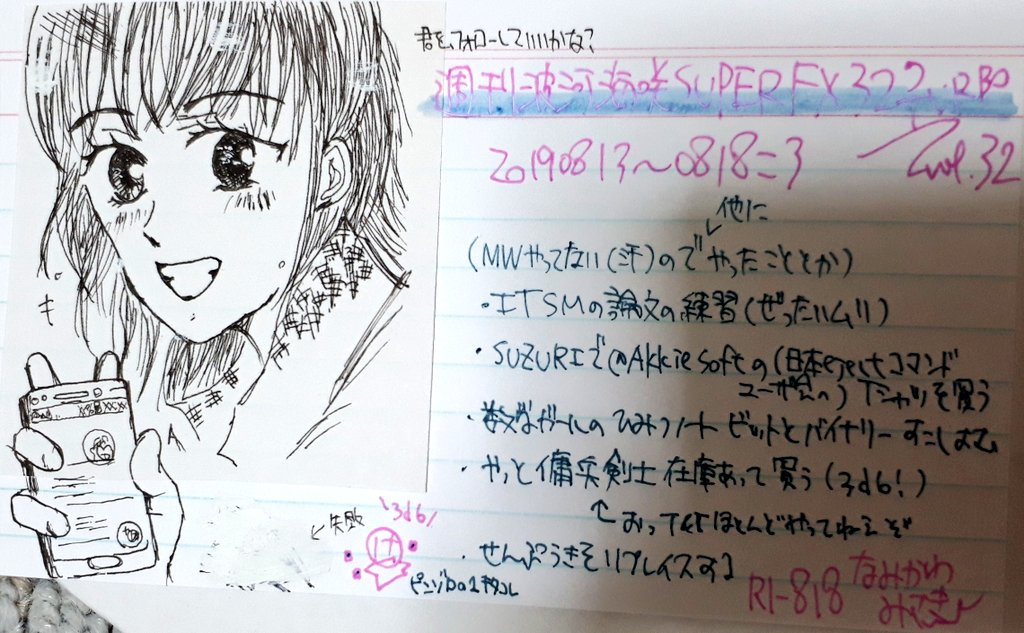 君をフォローしていいかな?
週刊波河海咲SUPER FX
20190813~0818=3
vol.32
他に
(MWやってない(汗)のでやったこととか)
・ITSMの論文の練習(ぜったいムリ)
・SUZURIで@Akkie softの(日本ejectコマンド
ユーザ会の)Tシャツを買う
・数学ガールのひみつノート ビットとバイナリー すこしよむ
・やっと傭兵剣士在庫あって買う(3d6!)
おってT&Tほとんどやってねえぞ
・せんぷうきをリプレイスする
キ
A
\3d6/
←失敗
け
R1-818 なみかわ
みさき